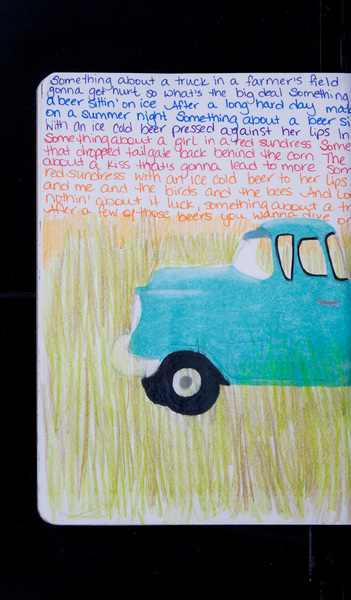 Something about a truck in a farmer's field
gonna get hurt so what's the big deal Something
a beer sittin' on ice After a long hard day mak
on a summer night Something about a beer si
with an ice cold beer pressed against her lips In
Something about a girl in a red sundress Some
that dropped tailgate back behind the corn The
about a kiss that's gonna lead to more som
red sundress with an ice cold beer to her lips
and me and the birds and the bees And Lo
nothin' about it luck, something about a tr
After a few of those beers you wanna dive or